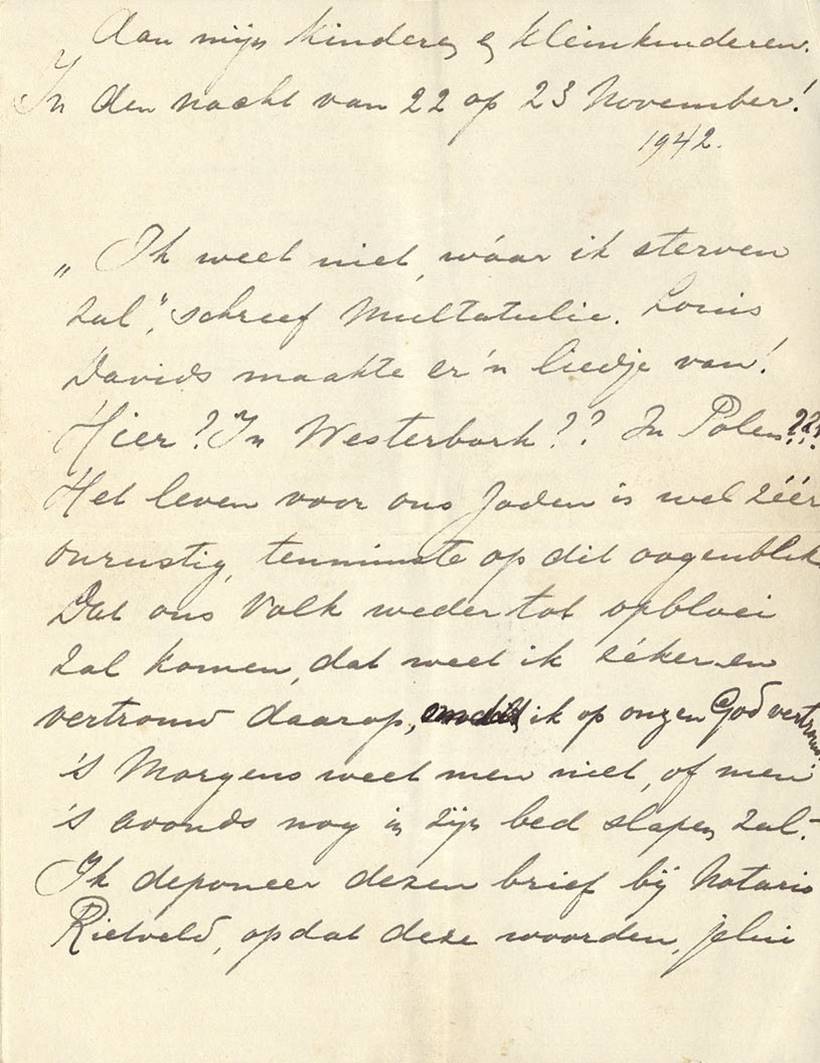 Aan mijn kinderen en kleinkinderen.
In den nacht van 22 op 23 November!
1942.
„Ik weet niet, wáar ik sterven
zal”, schreef Multatulie. Louis
Davids maakte er 'n liedje van!
Hier? In Westerbork?? In Polen???
Het leven voor ons Joden is wel zéér
onrustig, tenminste op dit oogenblik
Dat ons Volk weder tot opbloei
zal komen, dat weet ik zéker en
vertrouw daarop, ik op onzen God vertrouw.
's Morgens weet men niet, of men
's avonds nog in zijn bed slapen zal.-
Ik deponeer dezen brief bij Notaris
Rietveld, opdat deze woorden, jelui